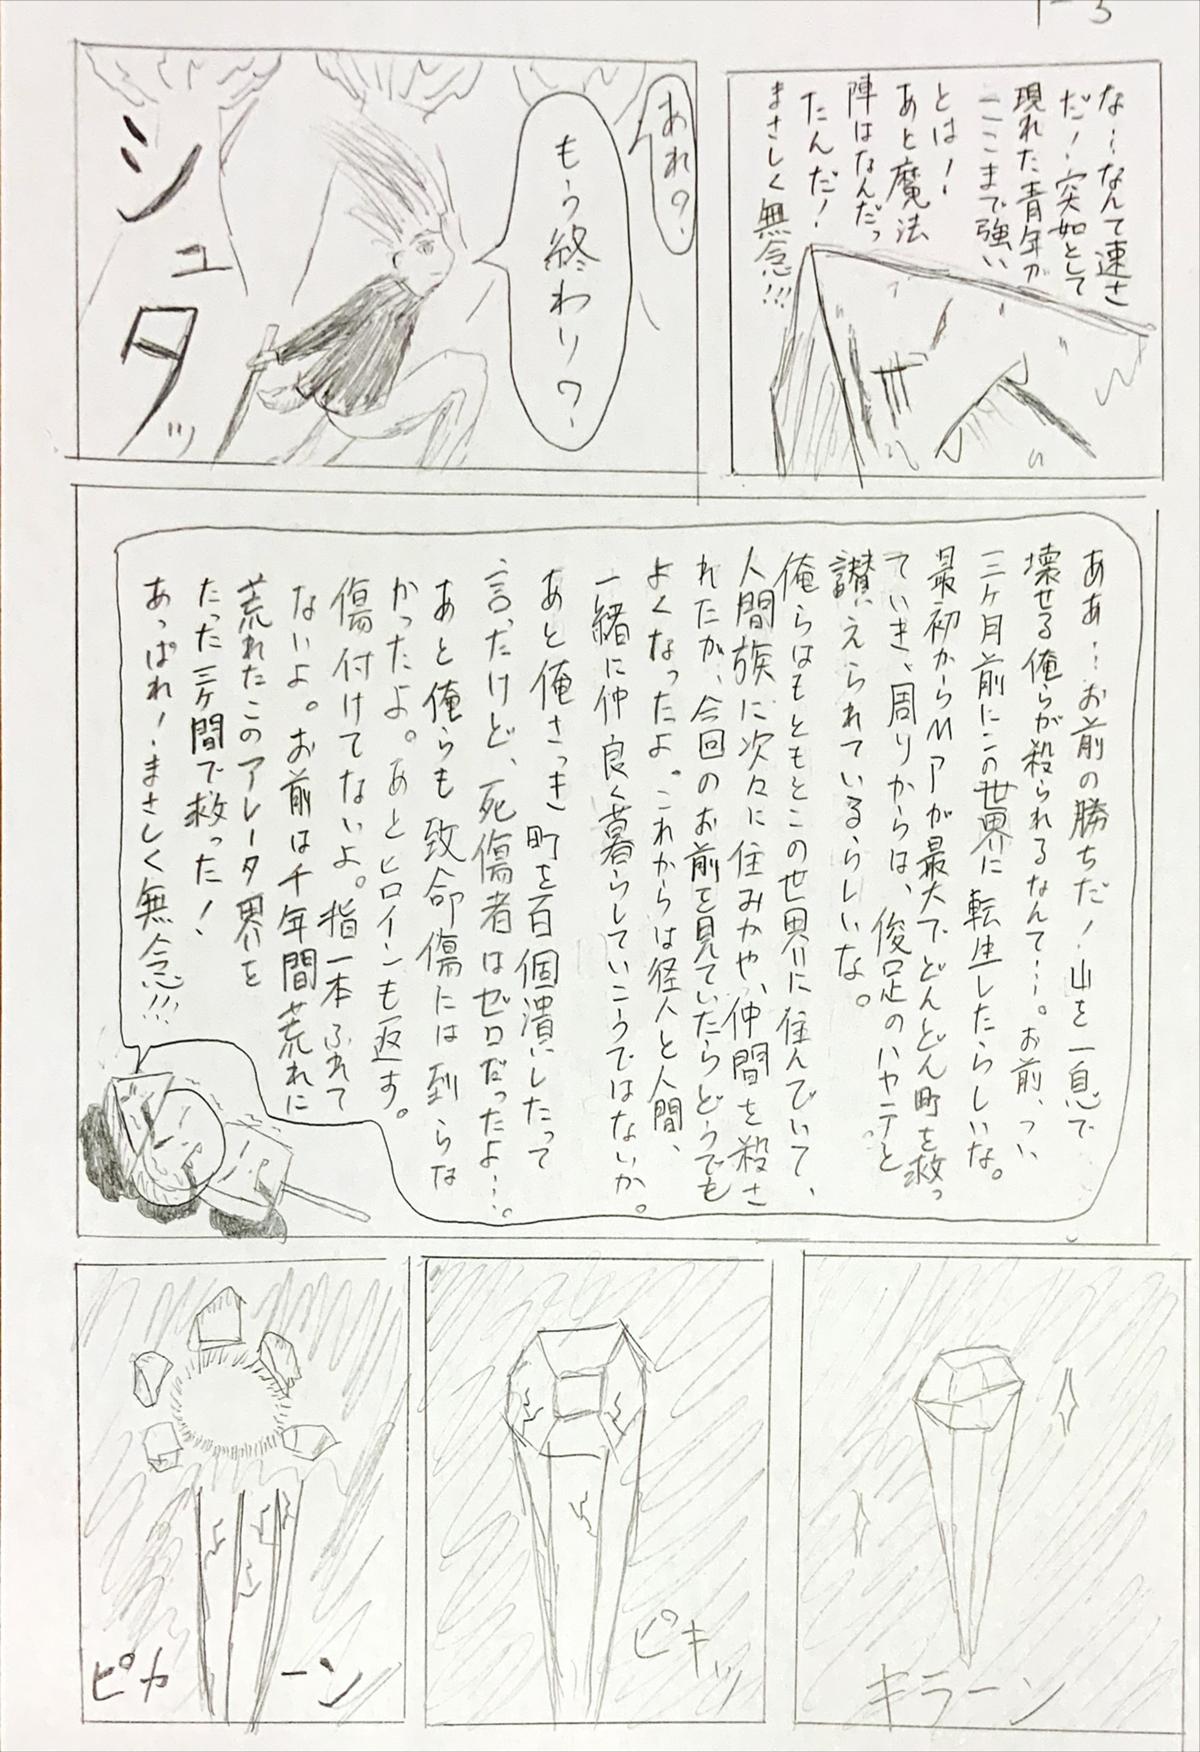 1-3
な…なんて速さ
だ！突如として
現れた青年が
ここまで強い
とは！
あと魔法
陣はなんだっ
たんだ！
まさしく無念!!!
あれ？
もう終わり？
シュタッ
ああ…お前の勝ちだ！山を一息で
壊せる俺らが殺られるなんて…。お前、つい
三ヶ月前にこの世界に転生したらしいな。
最初からMPが最大でどんどん町を救っ
ていき、周りからは、俊足のハヤテと
讃えられているらしいな。
俺らはもともとこの世界に住んでいて、
人間族に次々に住みかや、仲間を殺さ
れたが、今回のお前を見ていたらどうでも
よくなったよ。これからは怪人と人間、
一緒に仲良く暮らしていこうではないか。
あと俺さっき町を百個潰したって
言ったけど、死傷者はゼロだったよ…。
あと俺らも致命傷には到らな
かったよ。あとヒロインも返す。
傷付けてないよ。指一本ふれて
ないよ。お前は千年間荒れに
荒れたこのアレータ界を
たった三ヶ間で救った！
あっぱれ！まさしく無念!!!
キラーン
ピキッ
ピカーン